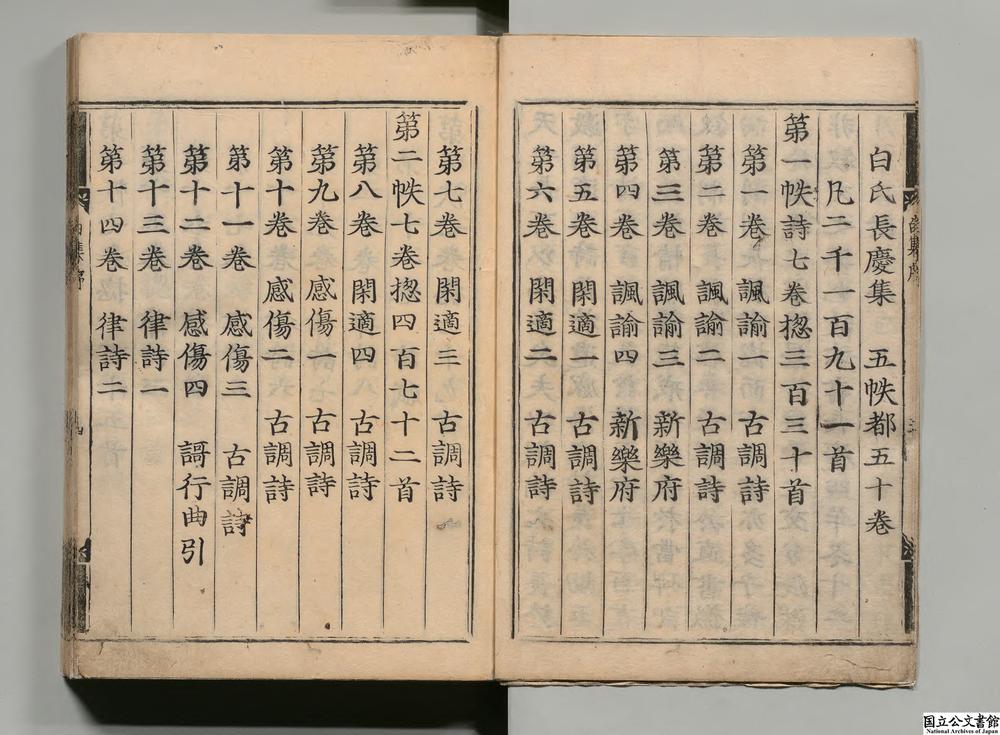 白氏長慶集　五帙都五十卷
凡二千一百九十一首
第一帙詩七卷揔三百三十首
第一卷　諷諭一　古調詩
第二卷　諷諭二　古調詩
第三卷　諷諭三　新樂府
第四卷　諷諭四　新樂府
第五卷　閑適一　古調詩
第六卷　閑適二　古調詩
第七卷　閑適三　古調詩
第二帙七卷揔四百七十二首
第八卷　閑適四　古調詩
第九卷　感傷一　古調詩
第十卷　感傷二　古調詩
第十一卷　感傷三　古調詩
第十二卷　感傷四　謌行曲引
第十三卷　律詩一
第十四卷　律詩二
国立公文書館
National Archives of Japan